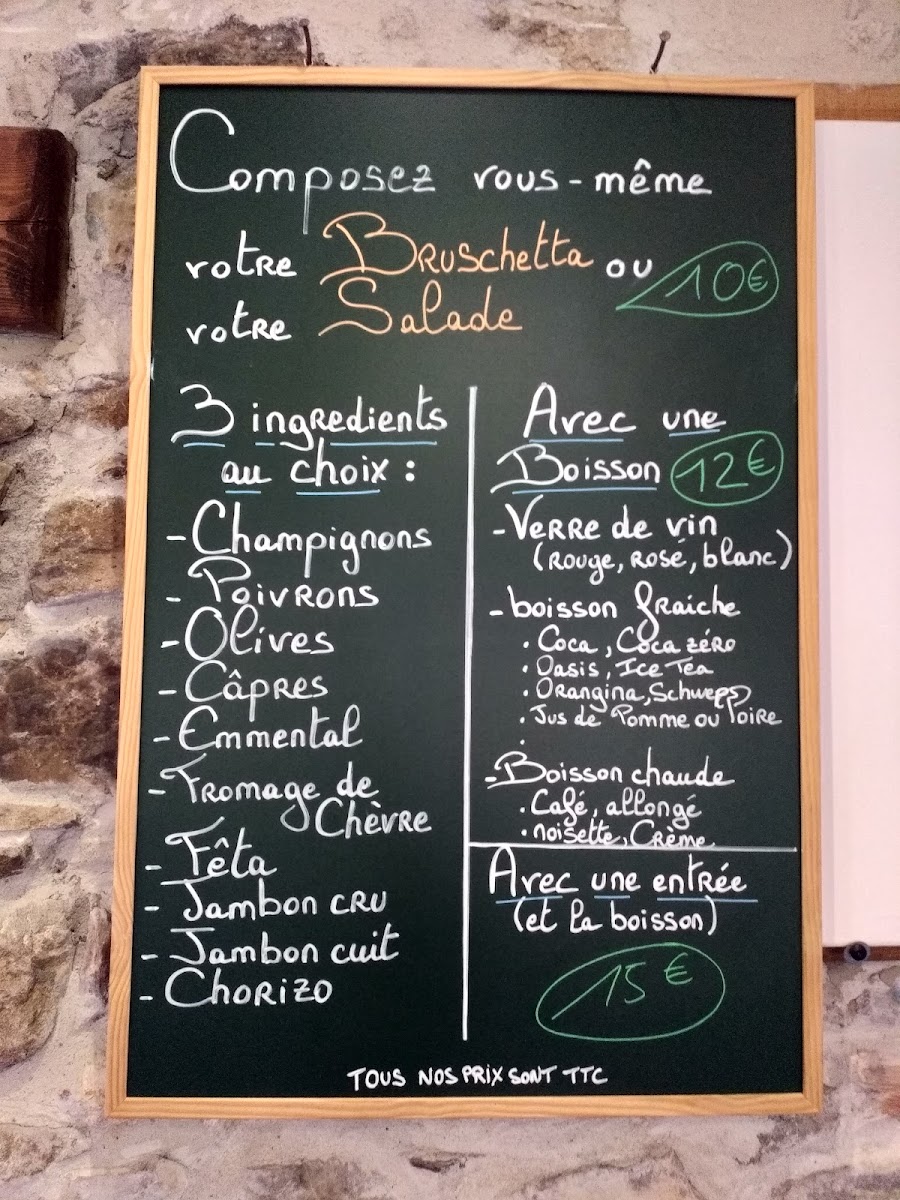 Composez vous-même
votre Bruschetta ou
10€
votre Salade
3 ingredients
au choix :
- Champignons
- Poivrons
- Olives
- Câpres
- Emmental
- Fromage de
Chèvre
- Fêta
- Jambon cru
- Jambon cuit
- Chorizo
Avec une
Boisson 12€
- Verre de vin
(rouge, rosé, blanc)
- boisson fraiche
• Coca, Coca zéro
• Oasis, Ice Tea
• Orangina, Schwepps
• Jus de Pomme ou Poire
•
- Boisson chaude
• Café, allongé
• noisette, Crème
Avec une entrée
(et la boisson)
15€
TOUS NOS PRIX SONT TTC